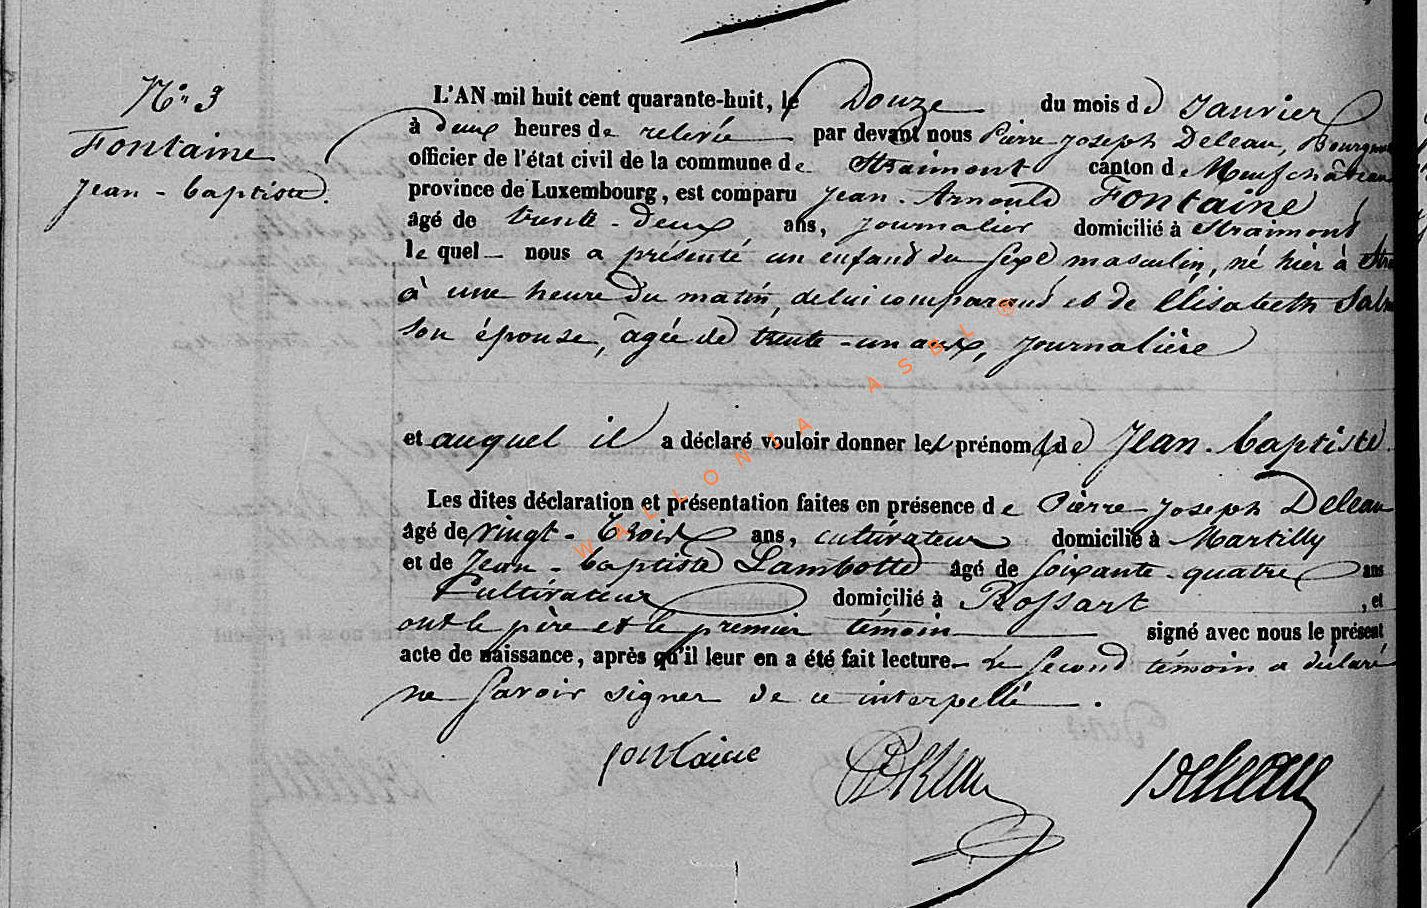 N° 3
Fontaine
Jean-baptiste.
L'AN mil huit cent quarante-huit, le Douze du mois de Janvier
à deux heures de relevée par devant nous Pierre Joseph Deleau,
officier de l'état civil de la commune de Straimont canton de Neufchâteau
province de Luxembourg, est comparu Jean-Arnould Fontaine,
âgé de trente-deux ans, journalier domicilié à Straimont
le quel nous a présenté un enfand du sexe masculin, né hier à
à une heure du matin, de lui comparant et de Elisabeth
son épouse, agée de trente-un ans, journalière
et auquel il a déclaré vouloir donner les prénoms de Jean-baptiste.
Les dites déclaration et présentation faites en présence de Pierre Joseph Deleau
âgé de vingt-trois ans, cultivateur domicilié à Martilly
et de Jean-baptiste Lambotte âgé de soixante-quatre ans
Cultivateur domicilié à Rossart, et
ont le père et le premier témoin signé avec nous le présent
acte de naissance, après qu'il leur en a été fait lecture. Le second témoin a déclaré
ne savoir signer de ce interpellé.
fontaine Deleau Deleau
WALLONIA ASBL ®